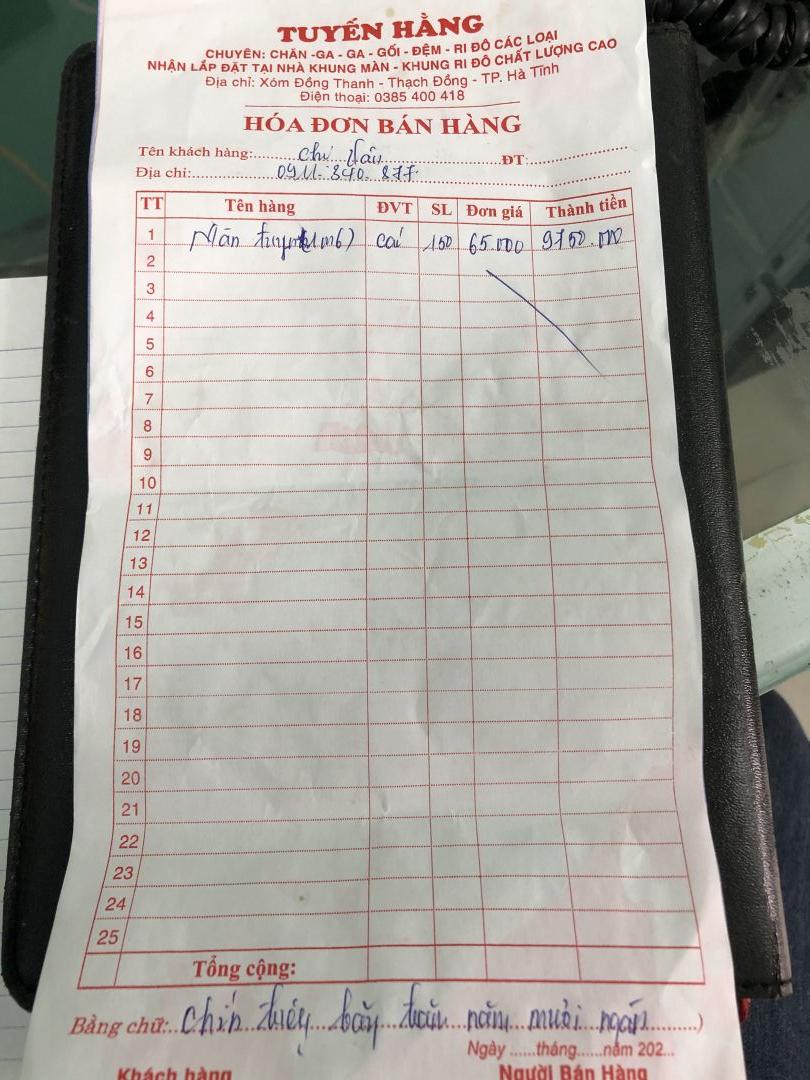 TUYẾN HẰNG
CHUYÊN: CHĂN -GA - GA - GỐI - ĐỆM - RI ĐÔ CÁC LOẠI
NHẬN LẮP ĐẶT TẠI NHÀ KHUNG MÀN - KHUNG RI ĐÔ CHẤT LƯỢNG CAO
Địa chỉ: Xóm Đồng Thanh - Thạch Đồng - TP. Hà Tĩnh
Điện thoại: 0385 400 418
HÓA ĐƠN BÁN HÀNG
Tên khách hàng: ĐT:
Địa chỉ: 0911.840.877
TT Tên hàng ĐVT SL Đơn giá Thành tiền
1 Màn (1m6) cái 150 65.000 9750.000
2
3
4
5
6
7
8
9
10
11
12
13
14
15
16
17
18
19
20
21
22
23
24
25
Tổng cộng:
Bằng chữ: chín triệu bảy trăm năm mươi ngàn )
Ngày ......tháng......năm 202...
Khách hàng Người Bán Hàng